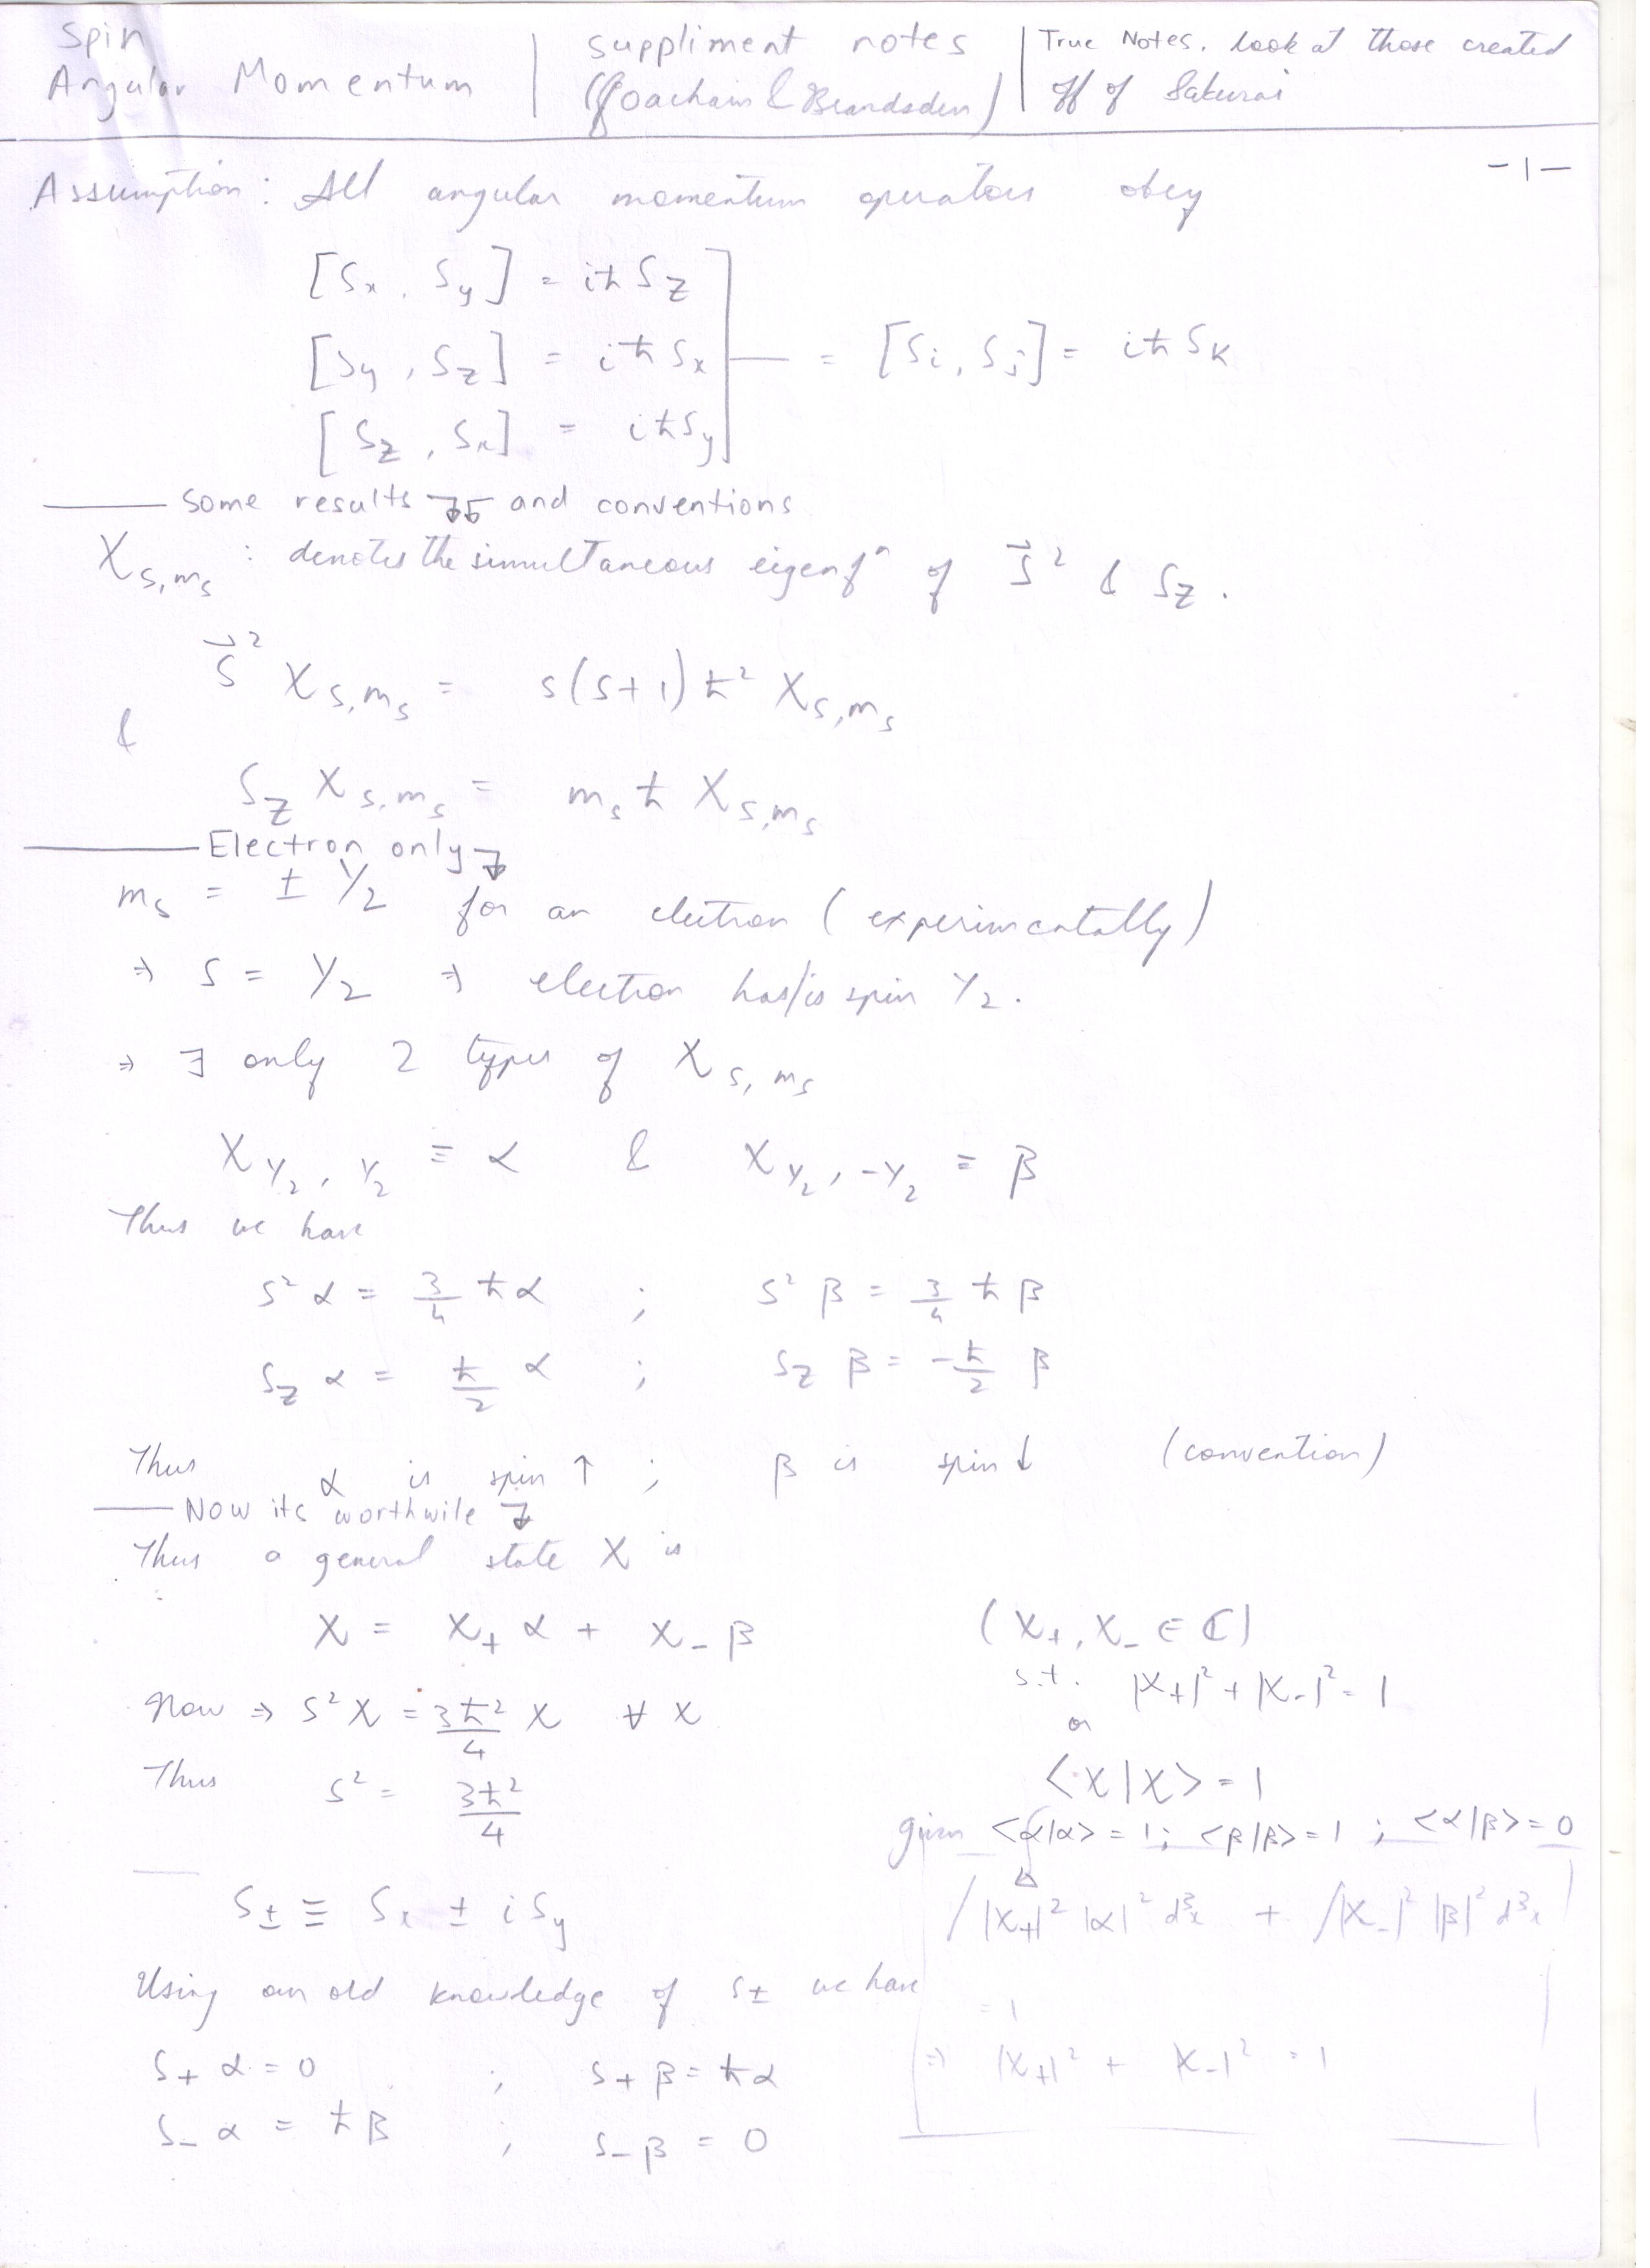 Spin
Angular Momentum
suppliment notes
(Joachain & Brandsden)
True Notes. Look at those created
off of Sakurai
-1-
Assumption: All angular momentum operators obey
[Sx, Sy] = iħ Sz
[Sy, Sz] = iħ Sx = [Si, Sj] = iħ Sk
[Sz, Sx] = iħ Sy
Some results and conventions
χ s,ms : denotes the simultaneous eigenfⁿ of S⃗² & Sz.
S⃗² χ s,ms = s(s+1) ħ² χ s,ms
&
Sz χ s,ms = ms ħ χ s,ms
Electron only
ms = ± 1/2 for an electron (experimentally)
⇒ s = 1/2 ⇒ electron has/is spin 1/2.
⇒ ∃ only 2 types of χ s,ms
χ 1/2, 1/2 ≡ α & χ 1/2, -1/2 = β
Thus we have
S² α = 3/4 ħ α ; S² β = 3/4 ħ β
Sz α = ħ/2 α ; Sz β = -ħ/2 β
Thus α is spin ↑ ; β is spin ↓ (convention)
Now its worthwile
Thus a general state χ is
χ = χ+ α + χ- β (χ+, χ- ∈ ℂ)
s.t. |χ+|² + |χ-|² = 1
Now ⇒ S² χ = 3ħ²/4 χ ∀ χ
or
Thus S² = 3ħ²/4
<χ|χ> = 1
given <α|α> = 1; <β|β> = 1 ; <α|β> = 0
∫|χ+|² |α|² d³x + ∫|χ-|² |β|² d³x
S± ≡ Sx ± i Sy
Using our old knowledge of S± we have
= 1
⇒ |χ+|² + |χ-|² = 1
S+ α = 0 ; S+ β = ħ α
S- α = ħ β ; S- β = 0